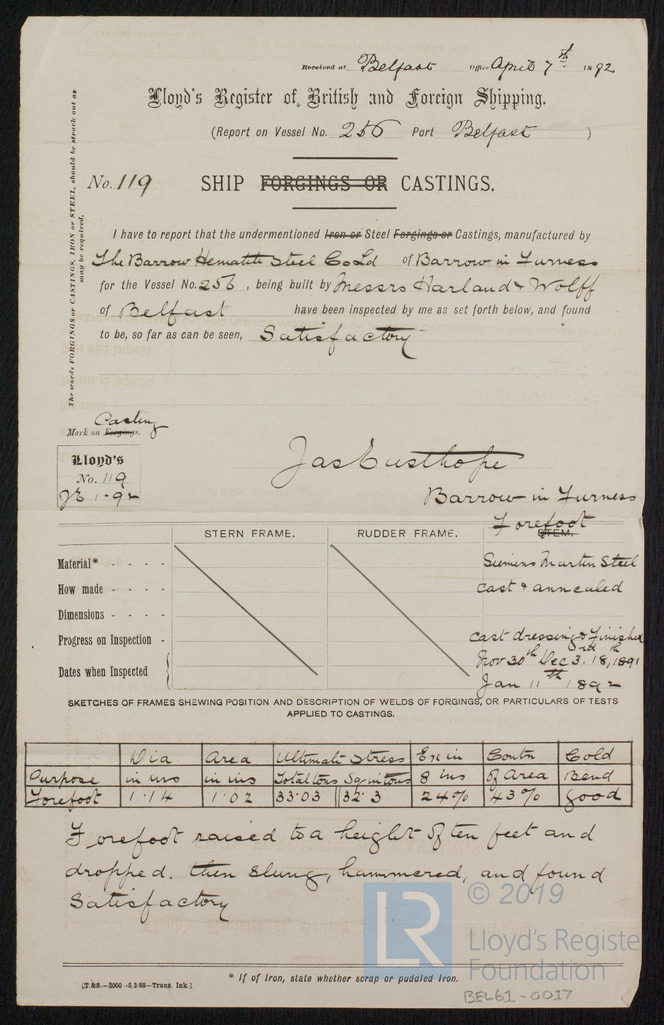 Received at Belfast Office April 7th 1892
Lloyd's Register of British and Foreign Shipping.
(Report on Vessel No. 256 Port Belfast )
The words FORGINGS or CASTINGS, IRON or STEEL, should be struck out as
may be required.
No. 119 SHIP FORGINGS OR CASTINGS.
I have to report that the undermentioned Iron or Steel Forgings or Castings, manufactured by
The Barrow Hematite Steel Co Ld of Barrow in Furness
for the Vessel No. 256, being built by Messrs Harland & Wolff
of Belfast have been inspected by me as set forth below, and found
to be, so far as can be seen, Satisfactory
Casting
Mark on Forgings.
Lloyd's
No. 119
JE 1.92
Jas Eusthope
Barrow in Furness
Forefoot
STERN FRAME. RUDDER FRAME. STEM.
Material* - - - - Siemens Martin Steel
How made - - - - cast & annealed
Dimensions - - - -
Progress on Inspection - cast dressing & Finished
Dates when Inspected Nov 30th Dec 3rd, 18th, 1891
Jan 11th 1892
SKETCHES OF FRAMES SHEWING POSITION AND DESCRIPTION OF WELDS OF FORGINGS, OR PARTICULARS OF TESTS
APPLIED TO CASTINGS.
Dia Area Ultimate Stress Ex in Contn Cold
Purpose in ins in ins Total tons Sq in tons 8 ins of Area Bend
Forefoot 1.14 1.02 33.03 32.3 24% 43% Good
Forefoot raised to a height of ten feet and
dropped. then slung, hammered, and found
Satisfactory
LR © 2019
Lloyd's Register
Foundation
* If of Iron, state whether scrap or puddled Iron.
[T.&S.—2000—5,3,88—Trans. Ink.]
BEL61-0017